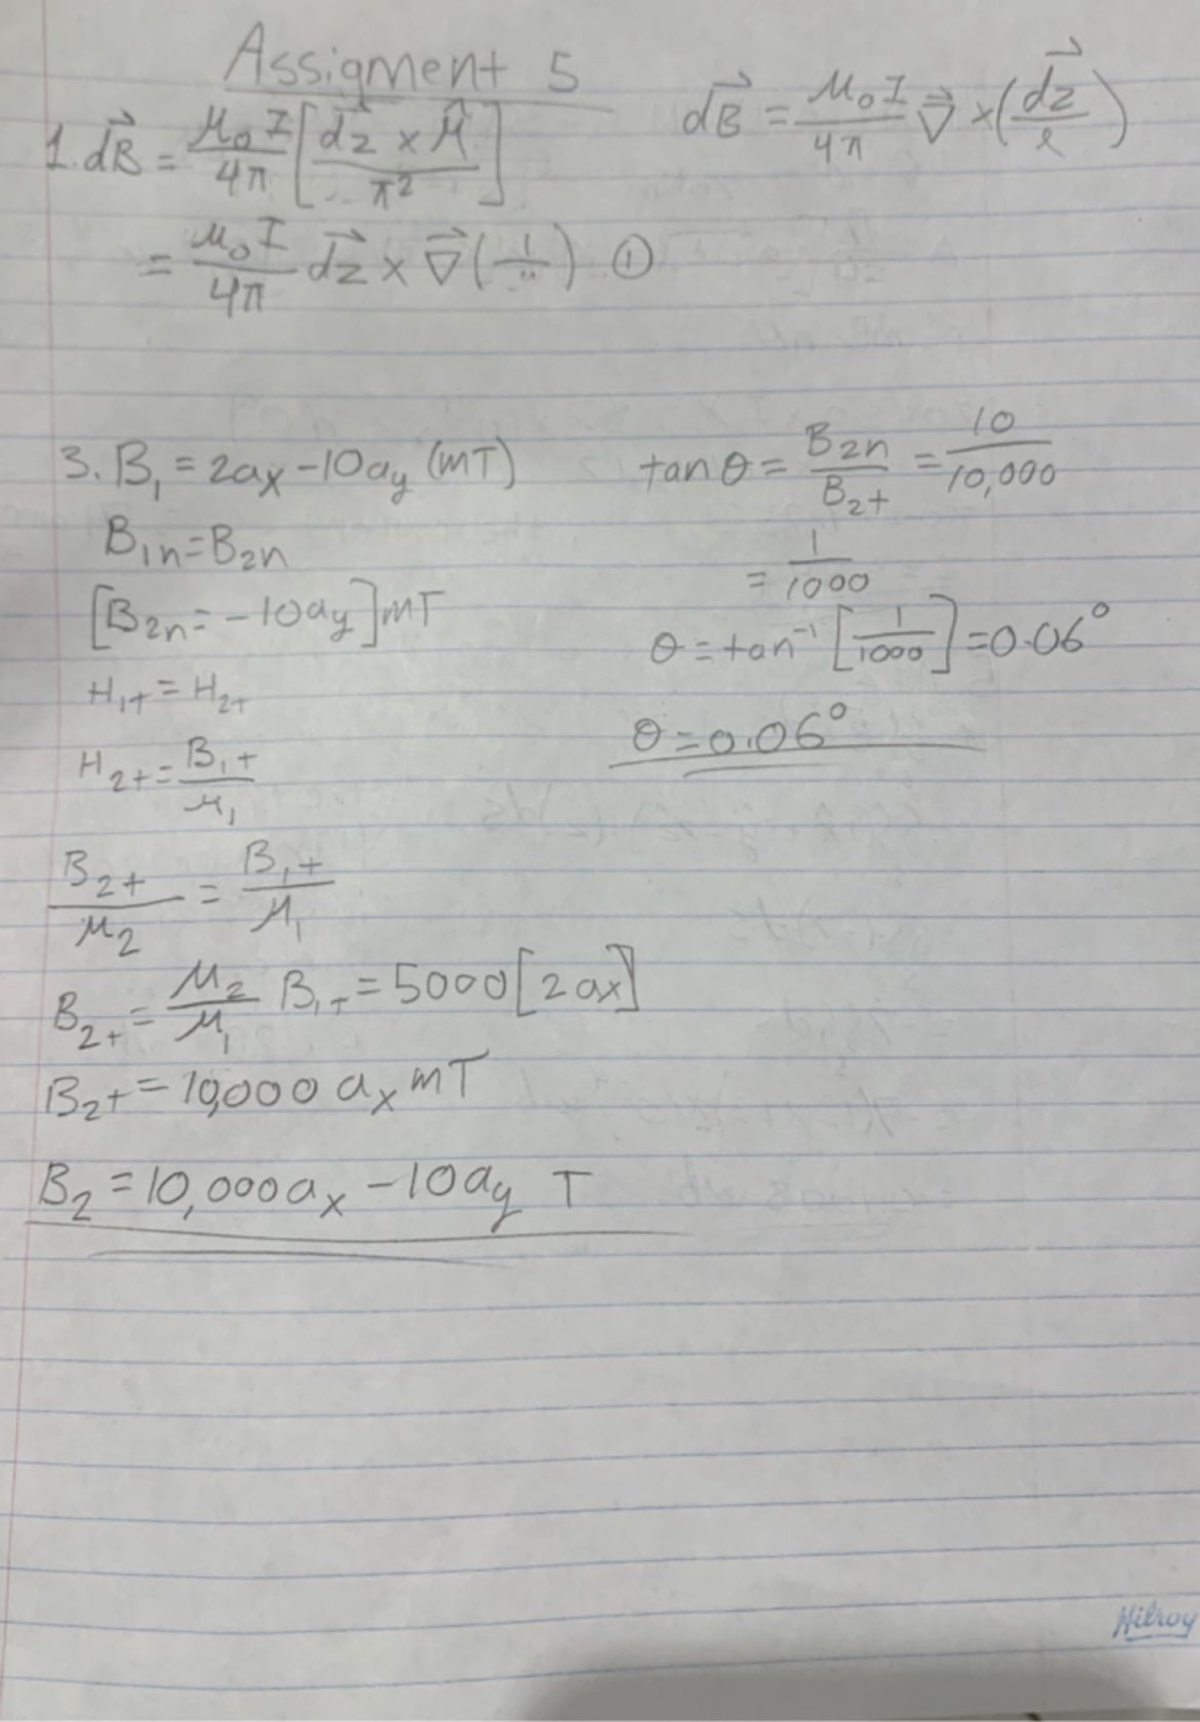 Assigment 5
1. dB⃗ = μ₀I/4π [dz⃗ × r̂ / r²]
= μ₀I/4π dz⃗ × ∇⃗(1/) ①
dB⃗ = μ₀I/4π ∇⃗ × (dz⃗/r)
3. B₁ = 2ax - 10ay (mT)
B₁n = B₂n
[B₂n = -10ay] mT
H₁t = H₂t
H₂t = B₁t/μ₁
B₂t/μ₂ = B₁t/μ₁
B₂t = μ₂/μ₁ B₁t = 5000[2ax]
B₂t = 10,000 ax mT
B₂ = 10,000ax - 10ay T
tanθ = B₂n/B₂t = 10/10,000
= 1/1000
θ = tan⁻¹[1/1000] = 0.06°
θ = 0.06°
Hilroy